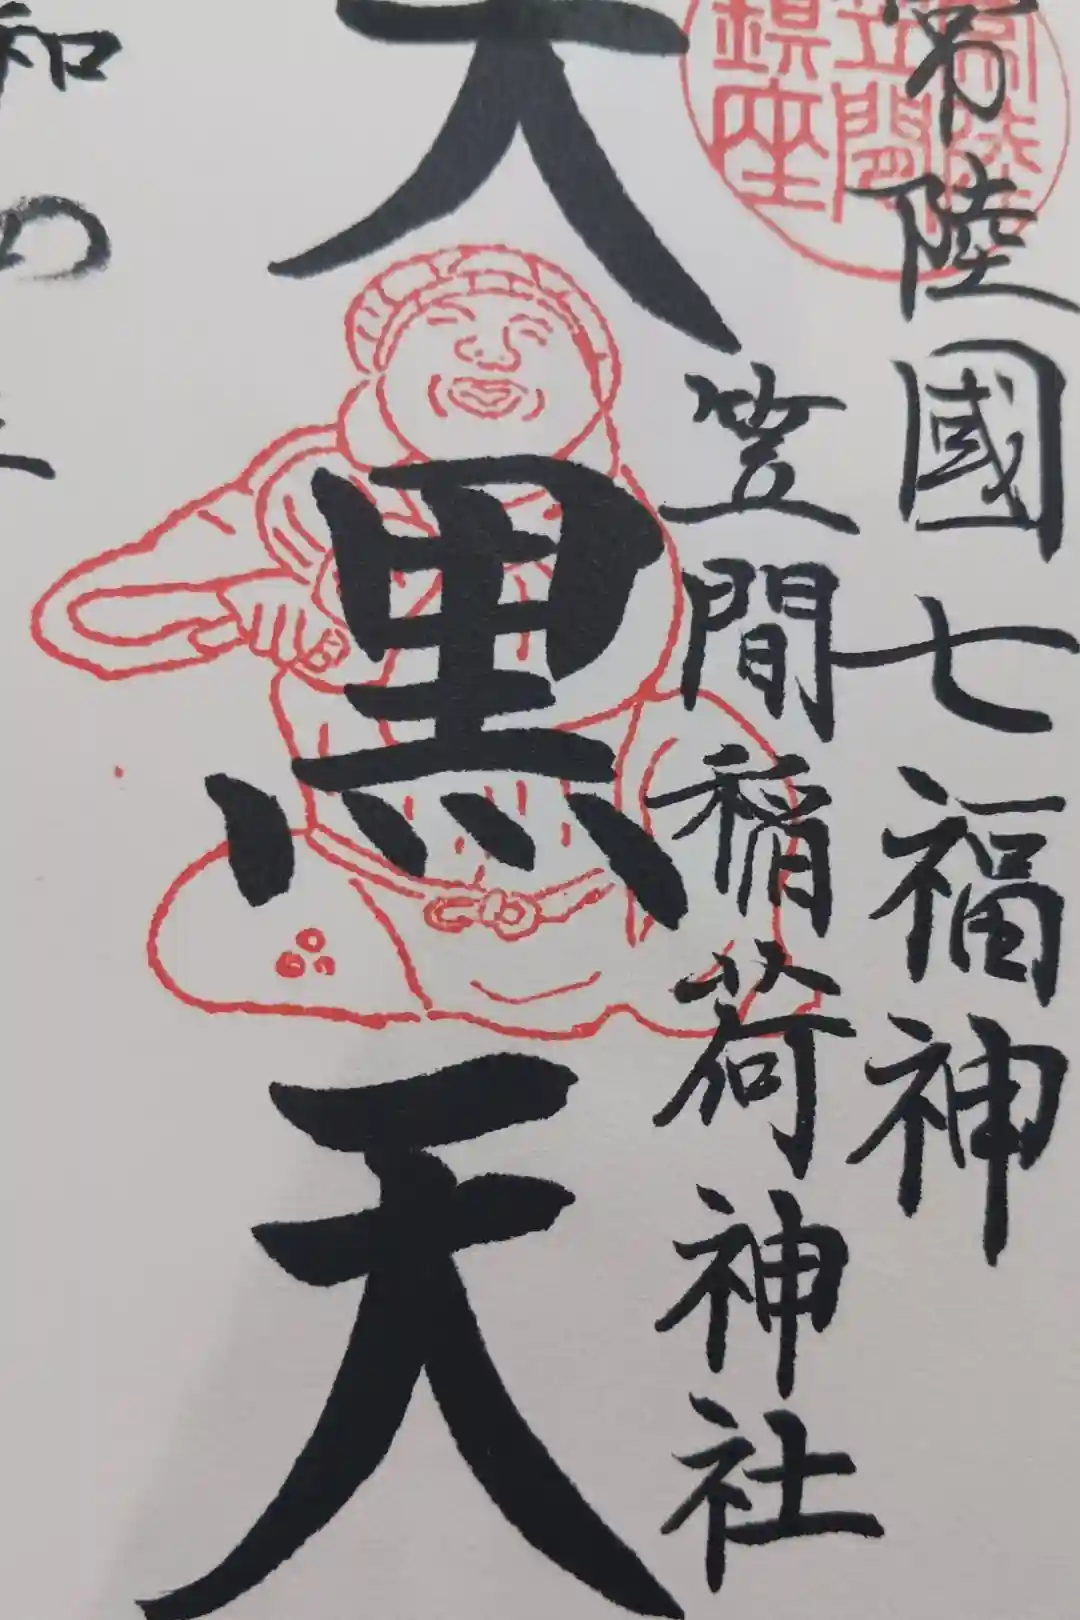 常陸國七福神
笠間稲荷神社
大黒天
和
常陸
笠間
鎮座